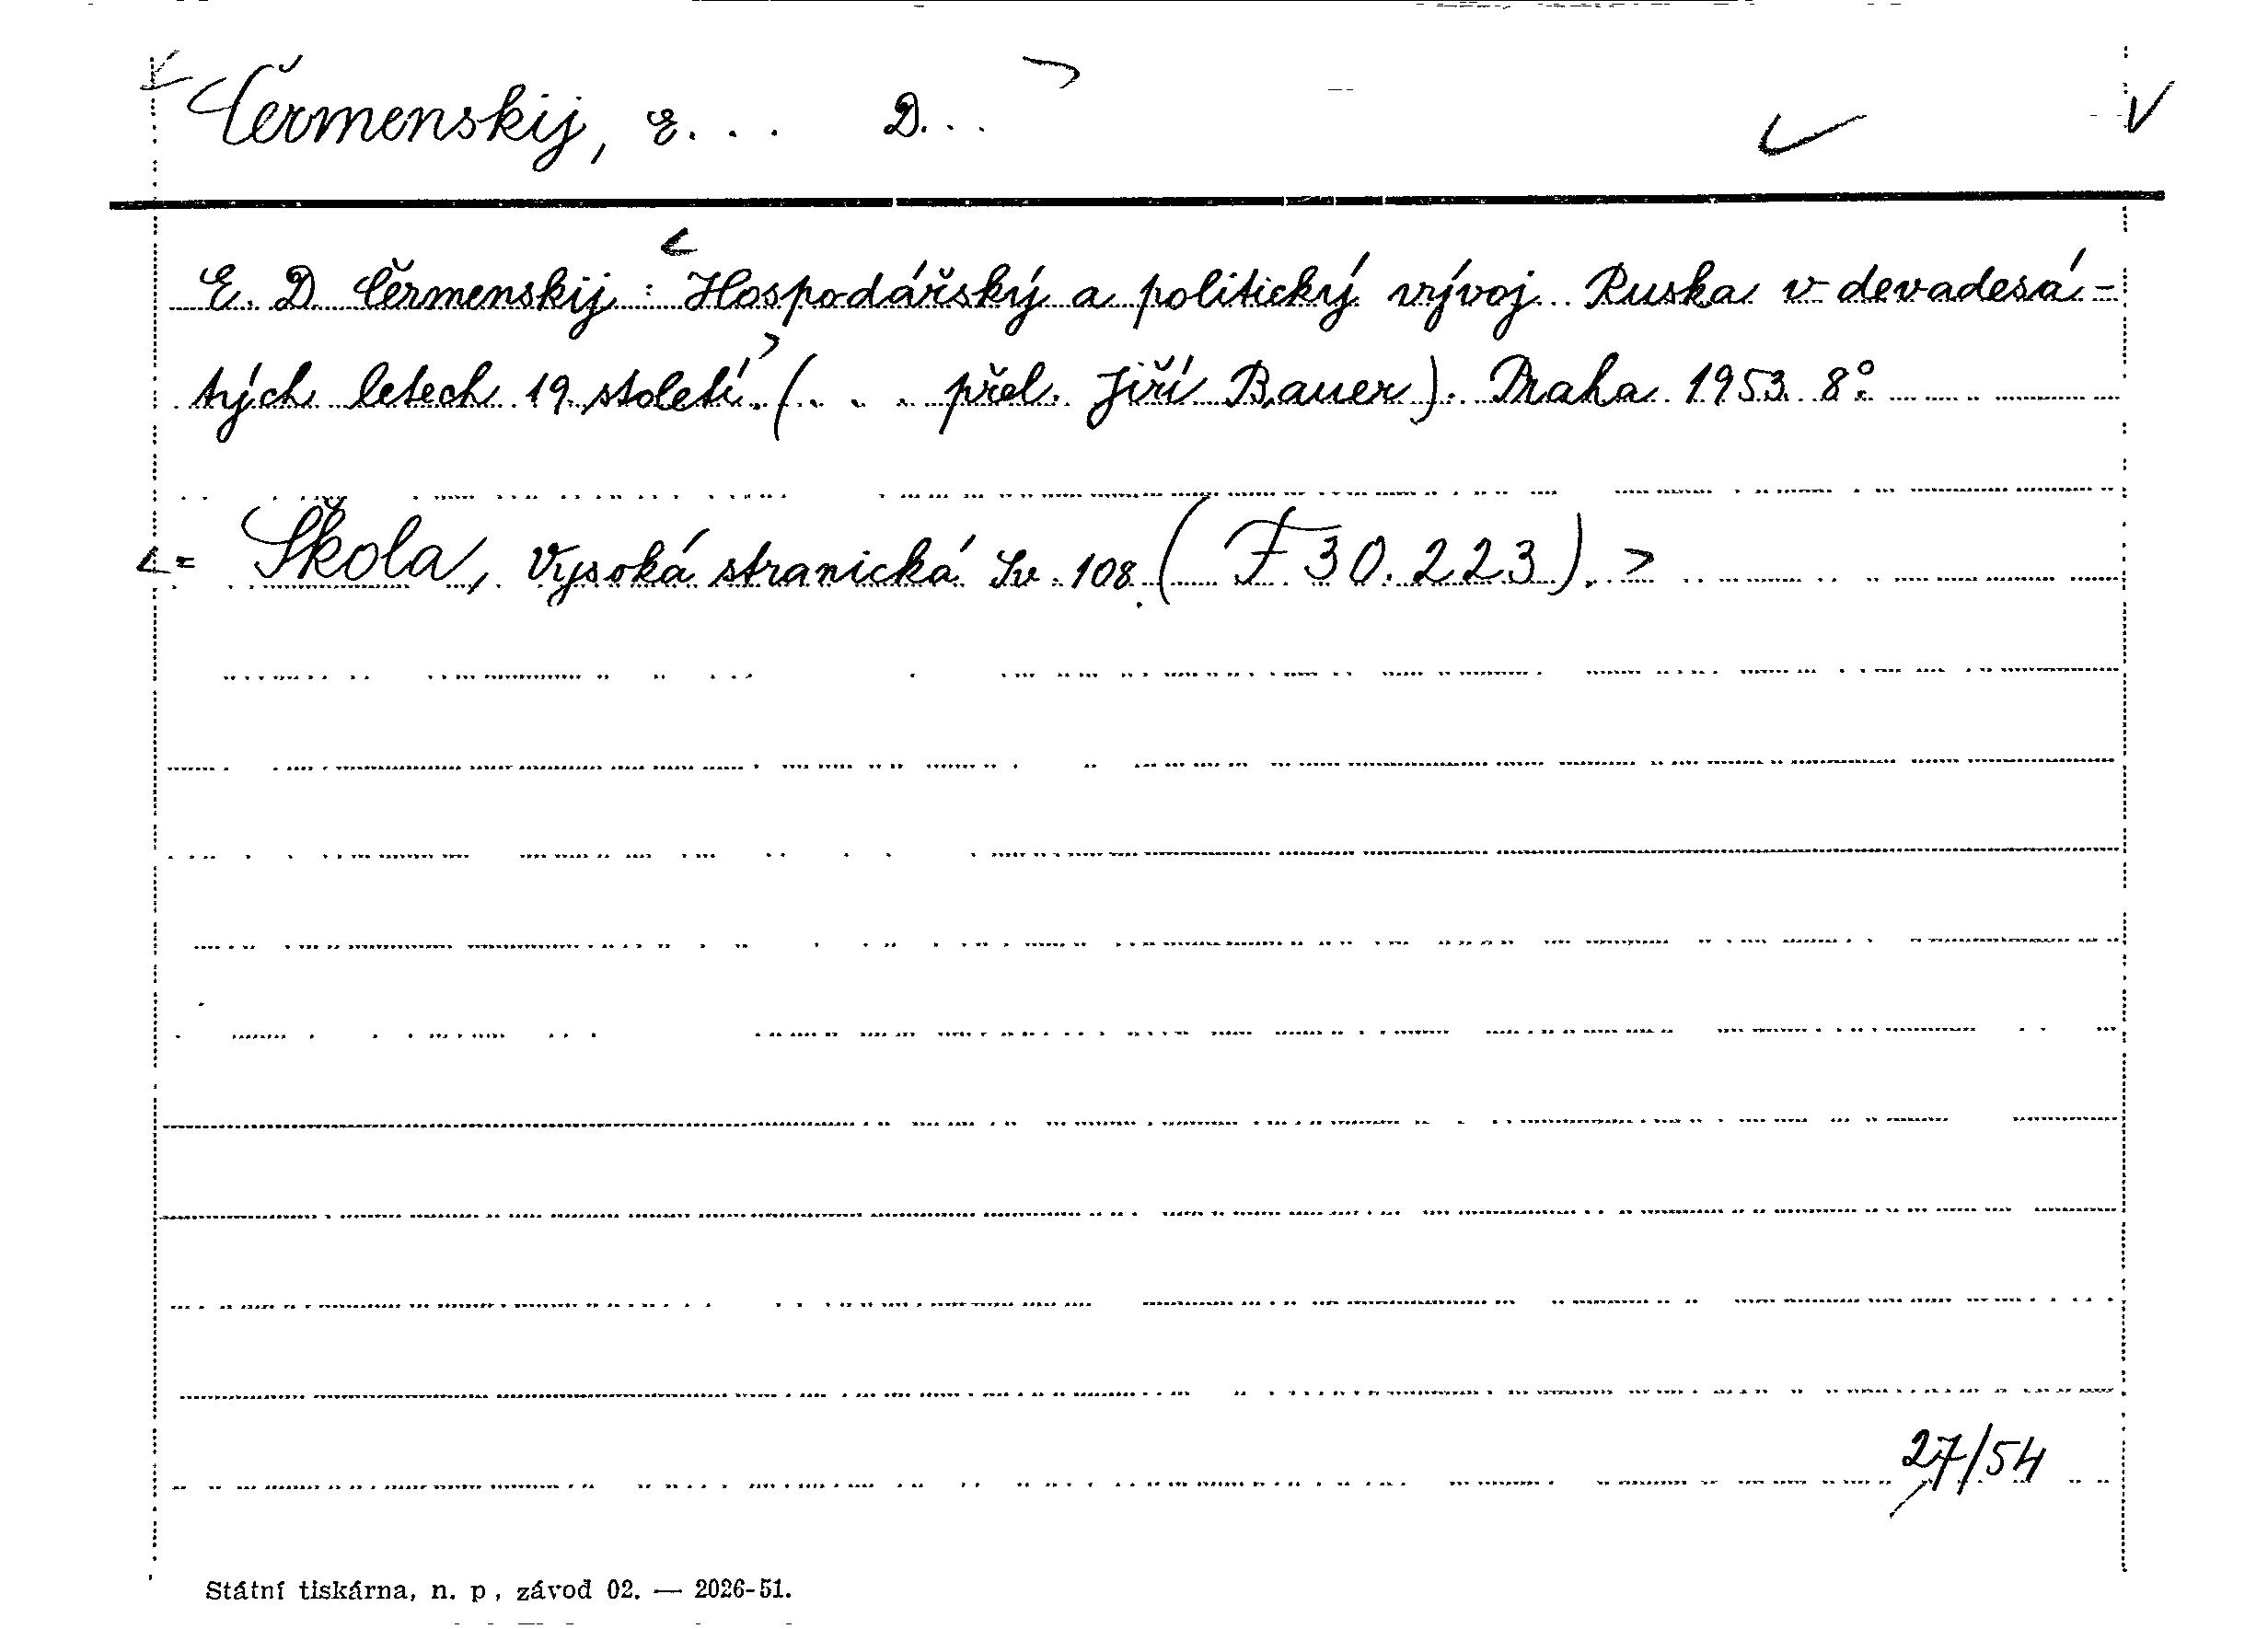 Čermenskij, E... D...
E. D. Čermenskij: Hospodářský a politický vývoj Ruska v devadesá-
tých letech 19. století. (... přel. Jiří Bauer). Praha 1953. 8°.
= Škola, Vysoká stranická Sv. 108. (F 30.223).
27/54
Státní tiskárna, n. p., závod 02. — 2026-51.